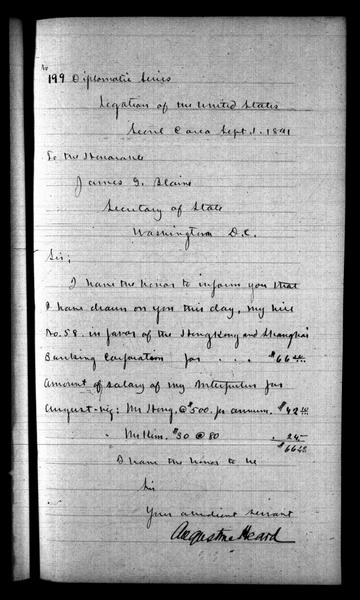 No
199 Diplomatic Series
Legation of the United States
Seoul Corea Sept. 1. 1891
To the Honorable
James G. Blaine
Secretary of State
Washington D.C.
Sir;
I have the honor to inform you that
I have drawn on you this day, my bill
No. 58. in favor of the Hongkong and Shanghai
Banking Corporation for . . . $66
Amount of salary of my Interpreters for
August - viz: Mr Hong. @ $500. per annum. $42
" Mr Kim. $30 @ 80 . 24
$66
I have the honor to be
Sir
Your obedient servant
Augustine Heard